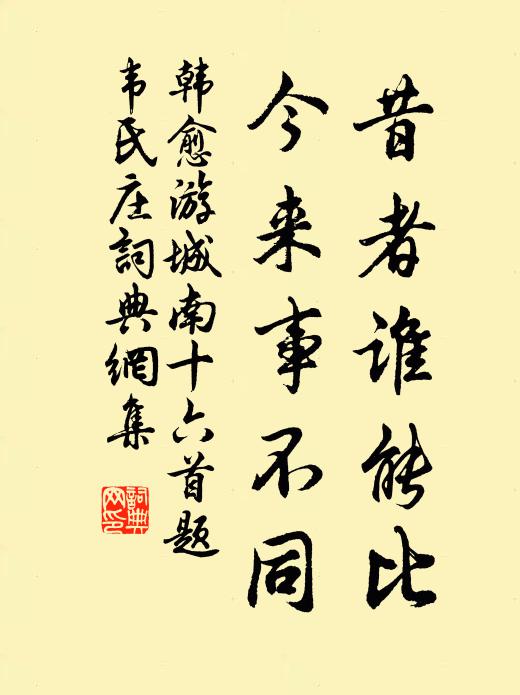 昔者谁能比
今来事不同
韩愈游城南十六首题
韦氏庄詞典網集
詞典
网印